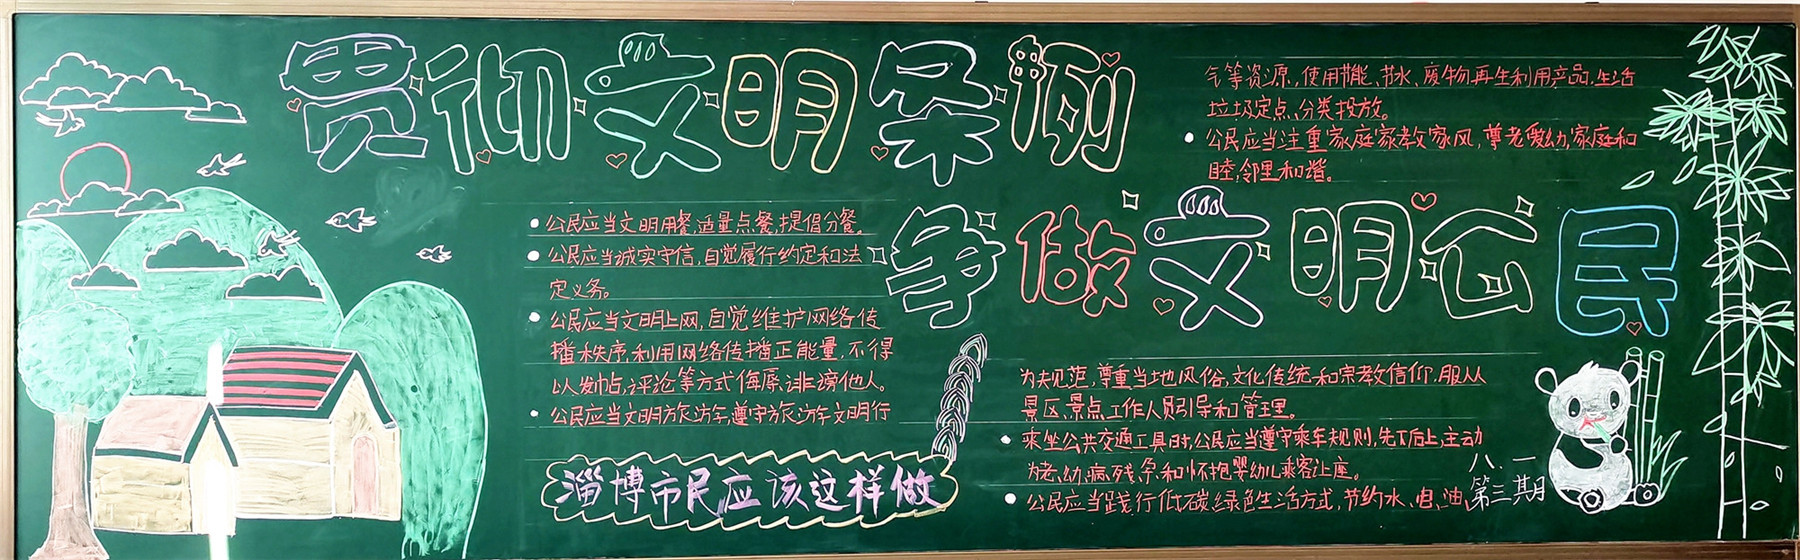 贯彻文明条例
争做文明公民
公民应当文明用餐,适量点餐,提倡分餐。
公民应当诚实守信,自觉履行约定和法
定义务。
公民应当文明上网,自觉维护网络传
播秩序,利用网络传播正能量,不得
以发帖,评论等方式侮辱、诽谤他人。
公民应当文明旅游,遵守旅游文明行
淄博市民应该这样做
为规范,尊重当地风俗,文化传统和宗教信仰,服从
景区、景点工作人员引导和管理。
乘坐公共交通工具时,公民应当遵守乘车规则,先下后上主动
为老、幼、病、残、孕和怀抱婴幼儿乘客让座。
公民应当践行低碳、绿色生活方式,节约水、电、油、
气等资源,使用节能、节水、废物再生利用产品,生活
垃圾定点、分类投放。
公民应当注重家庭家教家风,尊老爱幼,家庭和
睦,邻里和谐。
八.一
第三期